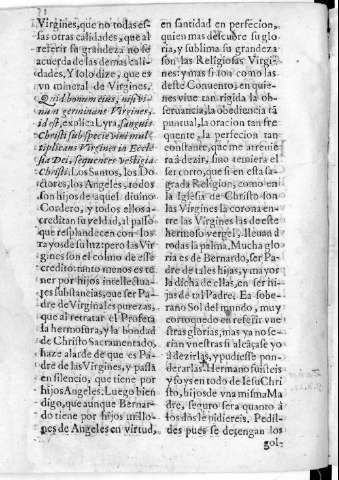 Virgines, que no todas es-
sas otras calidades, que al
referir su grandeza no se
acuerda de las demas cali-
dades, Y solo dize, que es
vn mineral de Virgines.
Quid bonum eius, nisi vi-
num germinans Virgines,
id est, explica Lyra, sanguis
Christi sub specie vini mul-
tiplicans Virgines in Eccle
sia Dei, sequentes vestigia
Christi. Los Santos, los Do-
ctores, los Angeles, todos
son hijos de aquel diuino
Cordero, y todos ellos a-
creditan su veldad, al passo
que resplandecen con los
rayos de su luz: pero las Vir
gines son el colmo de esse
credito: tanto menos es te-
ner por hijos intellectua-
les substancias, que ser Pa-
dre de Virginales purezas,
que al retratar el Profeta
la hermosura, y la bondad
de Christo Sacramentado,
haze alarde de que es Pa-
dre de las Virgines, y passa
en silencio, que tiene por
hijos Angeles. Luego bien
digo, que aunque Bernar-
do tiene por hijos millo-
nes de Angeles en virtud,
en santidad en perfecion,
quien mas descubre su glo-
ria, y sublima su grandeza
son las Religiosas Virgi-
nes: y mas si son como las
deste Conuento, en quie-
nes viue tan rigida la ob-
seruancia, la obediencia tã
puntual, la oracion tan fre
quente, la perfecion tan
constante, que me atreuie
ra à dezir, sino temiera el
ser corto, que si en esta sa-
grada Religion, como en
la Iglesia de Christo son
las Virgines la corona en-
tre las Virgines las de este
hermoso vergel, lleuan à
todas la palma. Mucha glo
ria es de Bernardo, ser Pa-
dre de tales hijas, y mayor
la dicha de ellas, en ser hi-
jas de tal Padre. Ea sobe-
rano Sol del mundo, muy
corto quedo en referir vue
stras glorias, mas ya no se-
rian vuestras si alcãçase yo
à dezirlas, y pudiesse pon-
derarlas. Hermano sois teis
y soys en todo de Iesu Chri
sto, hijos de vna misma Ma
dre, seguro sera quanto à
los dos le pidiereis. Pedil-
des pues se detengan los
gol-